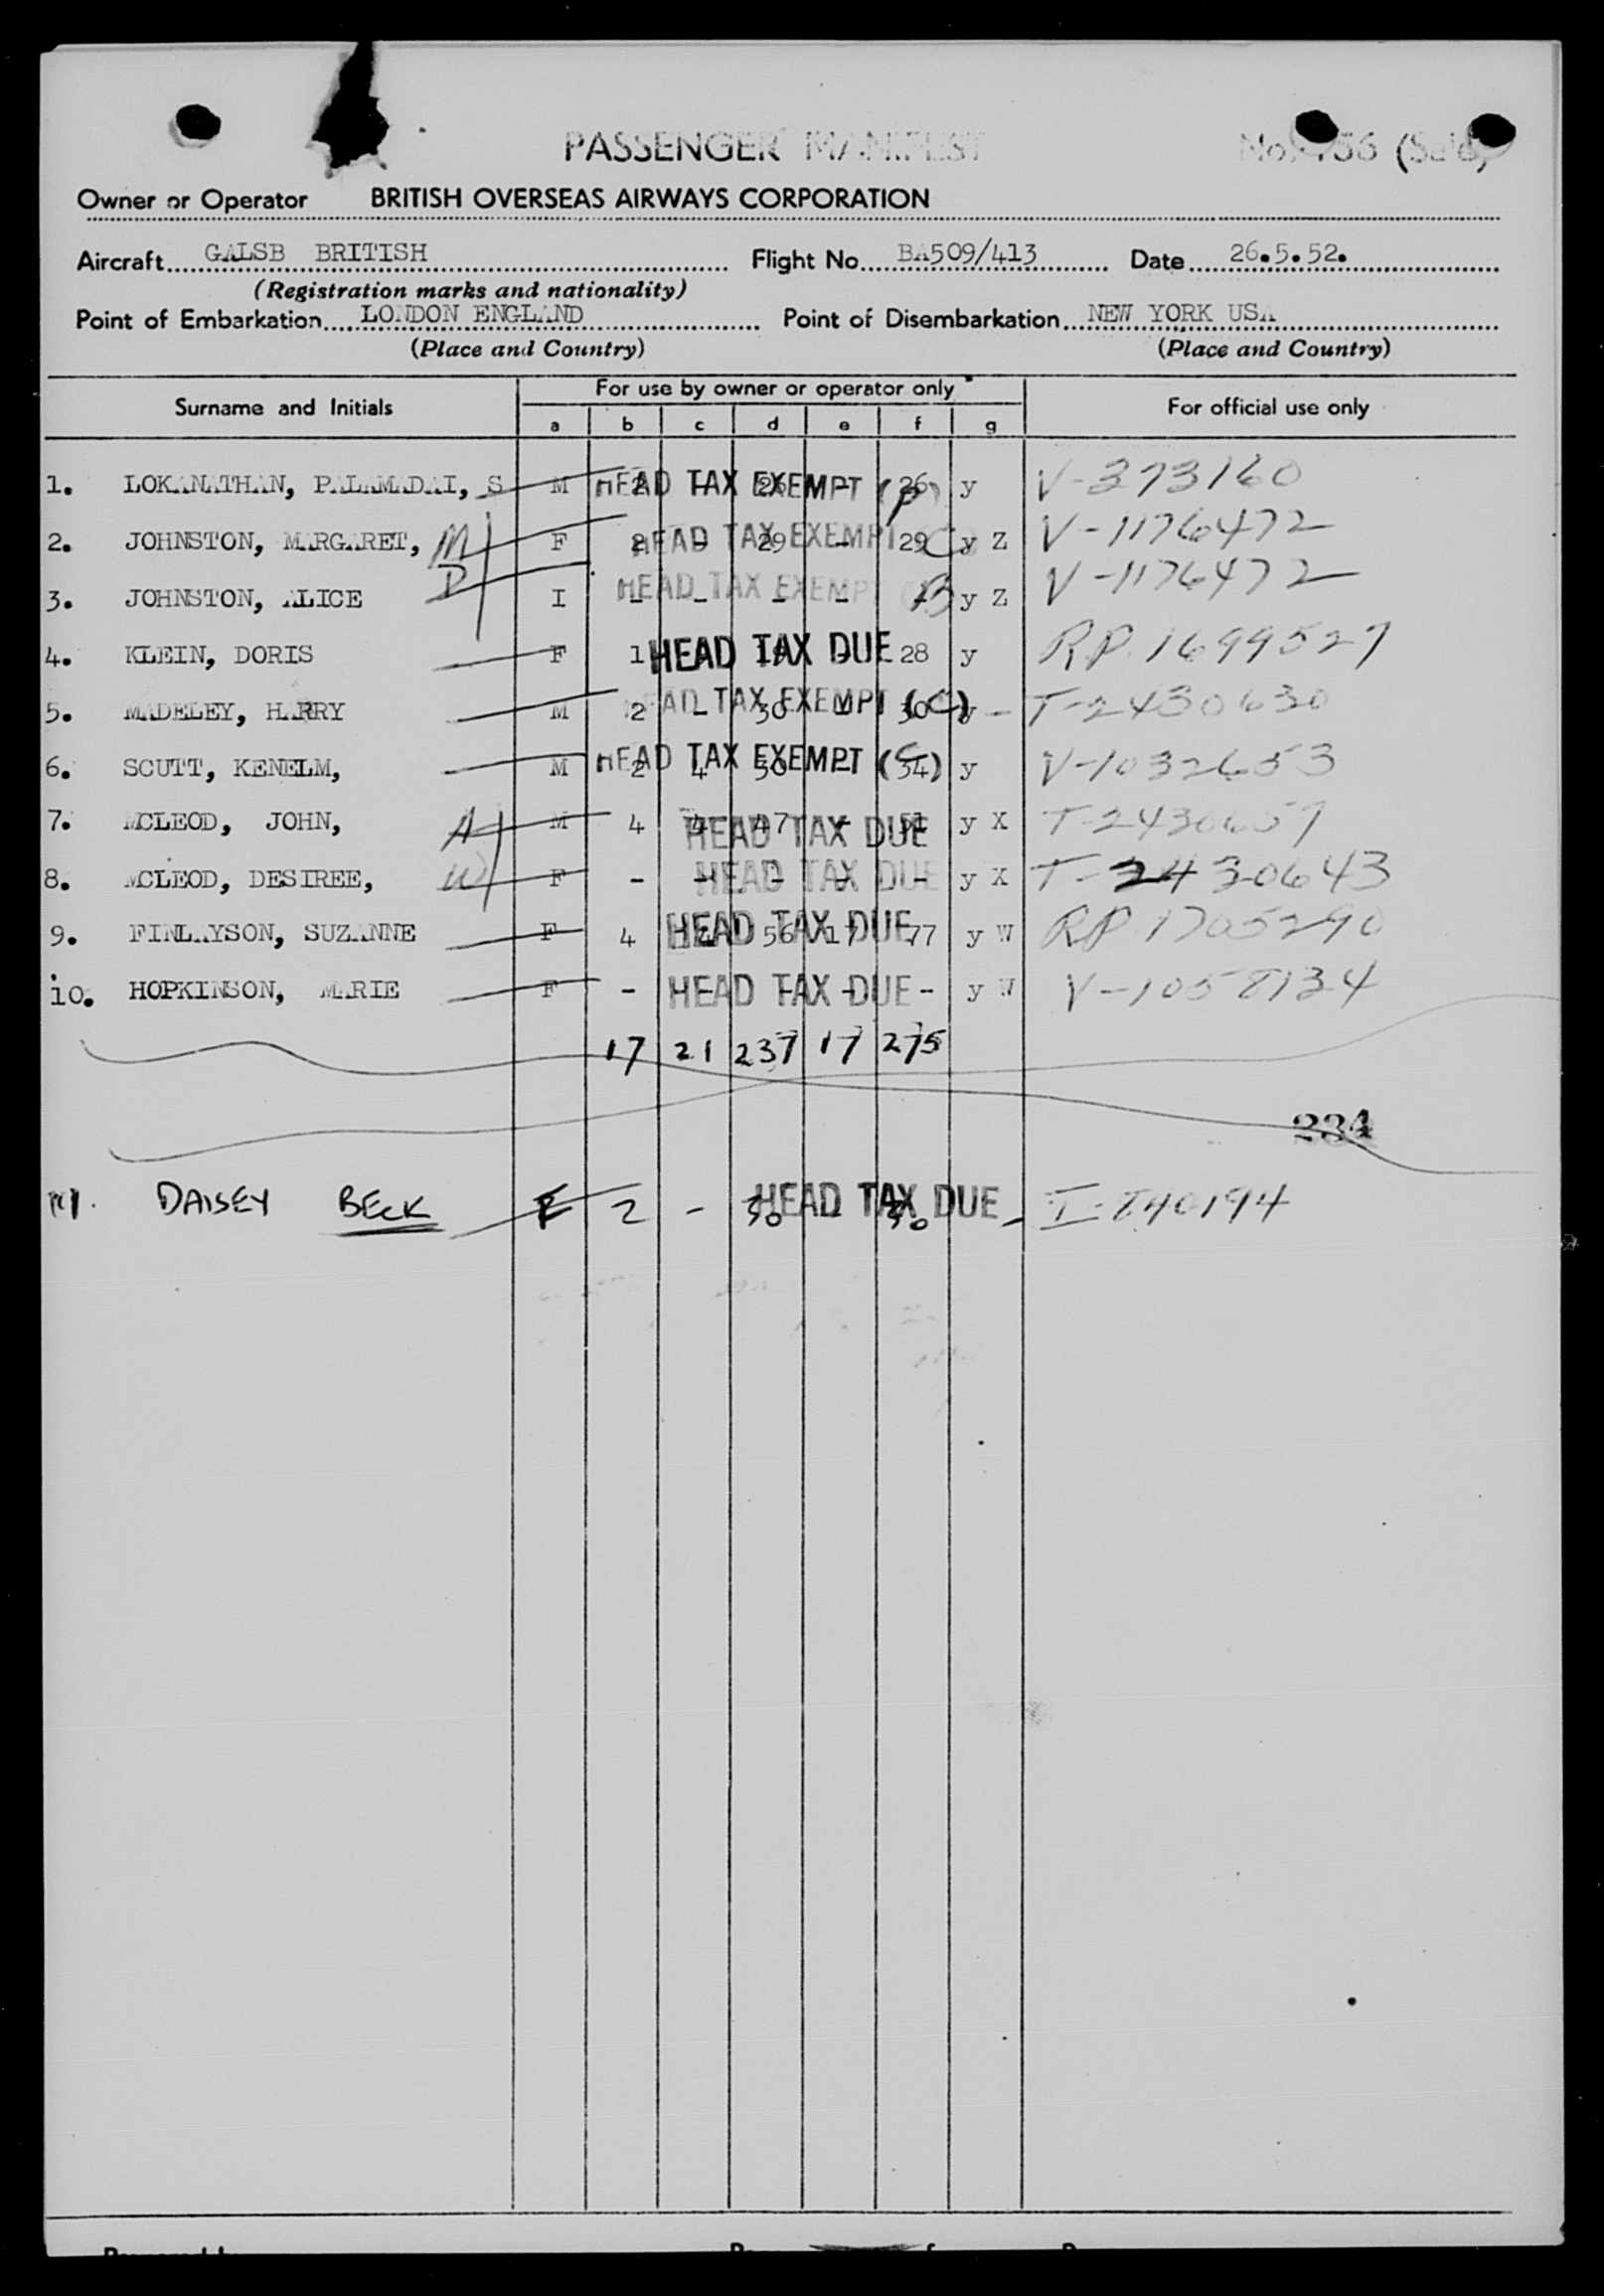 PASSENGER MANIFEST
Owner or Operator BRITISH OVERSEAS AIRWAYS CORPORATION
Aircraft GALSB BRITISH Flight No. BA509/413 Date 26.5.52.
(Registration marks and nationality)
Point of Embarkation LONDON ENGLAND Point of Disembarkation NEW YORK USA
(Place and Country) (Place and Country)
For use by owner or operator only
Surname and Initials For official use only
a b c d e f g
1. LOKANATHAN, PALAMADAI, S M 2 - 26 - 26 y HEAD TAX EXEMPT (P) V-373160
2. JOHNSTON, MARGARET, M F 2 - 29 - 29 y Z HEAD TAX EXEMPT (C) V-1176472
3. JOHNSTON, ALICE D I - - - - - y Z HEAD TAX EXEMPT (B) V-1176472
4. KLEIN, DORIS F 1 HEAD TAX DUE 28 y R.P. 1699527
5. MADELEY, HARRY M 2 - 30 - 30 y HEAD TAX EXEMPT (C) - T-2430630
6. SCUTT, KENELM, M 2 4 50 - 54 y HEAD TAX EXEMPT (C) V-1032653
7. MCLEOD, JOHN, H M 4 4 47 - 51 y X HEAD TAX DUE T-2430657
8. MCLEOD, DESIREE, W F - - - - - y X HEAD TAX DUE T-2430643
9. FINLAYSON, SUZANNE F 4 4 56 17 77 y W HEAD TAX DUE RP 1705290
10. HOPKINSON, MARIE F - - - - - y W HEAD TAX DUE V-1058134
17 21 237 17 275
234
11. DAISEY BECK F 2 - 30 - 30 HEAD TAX DUE - I-840194